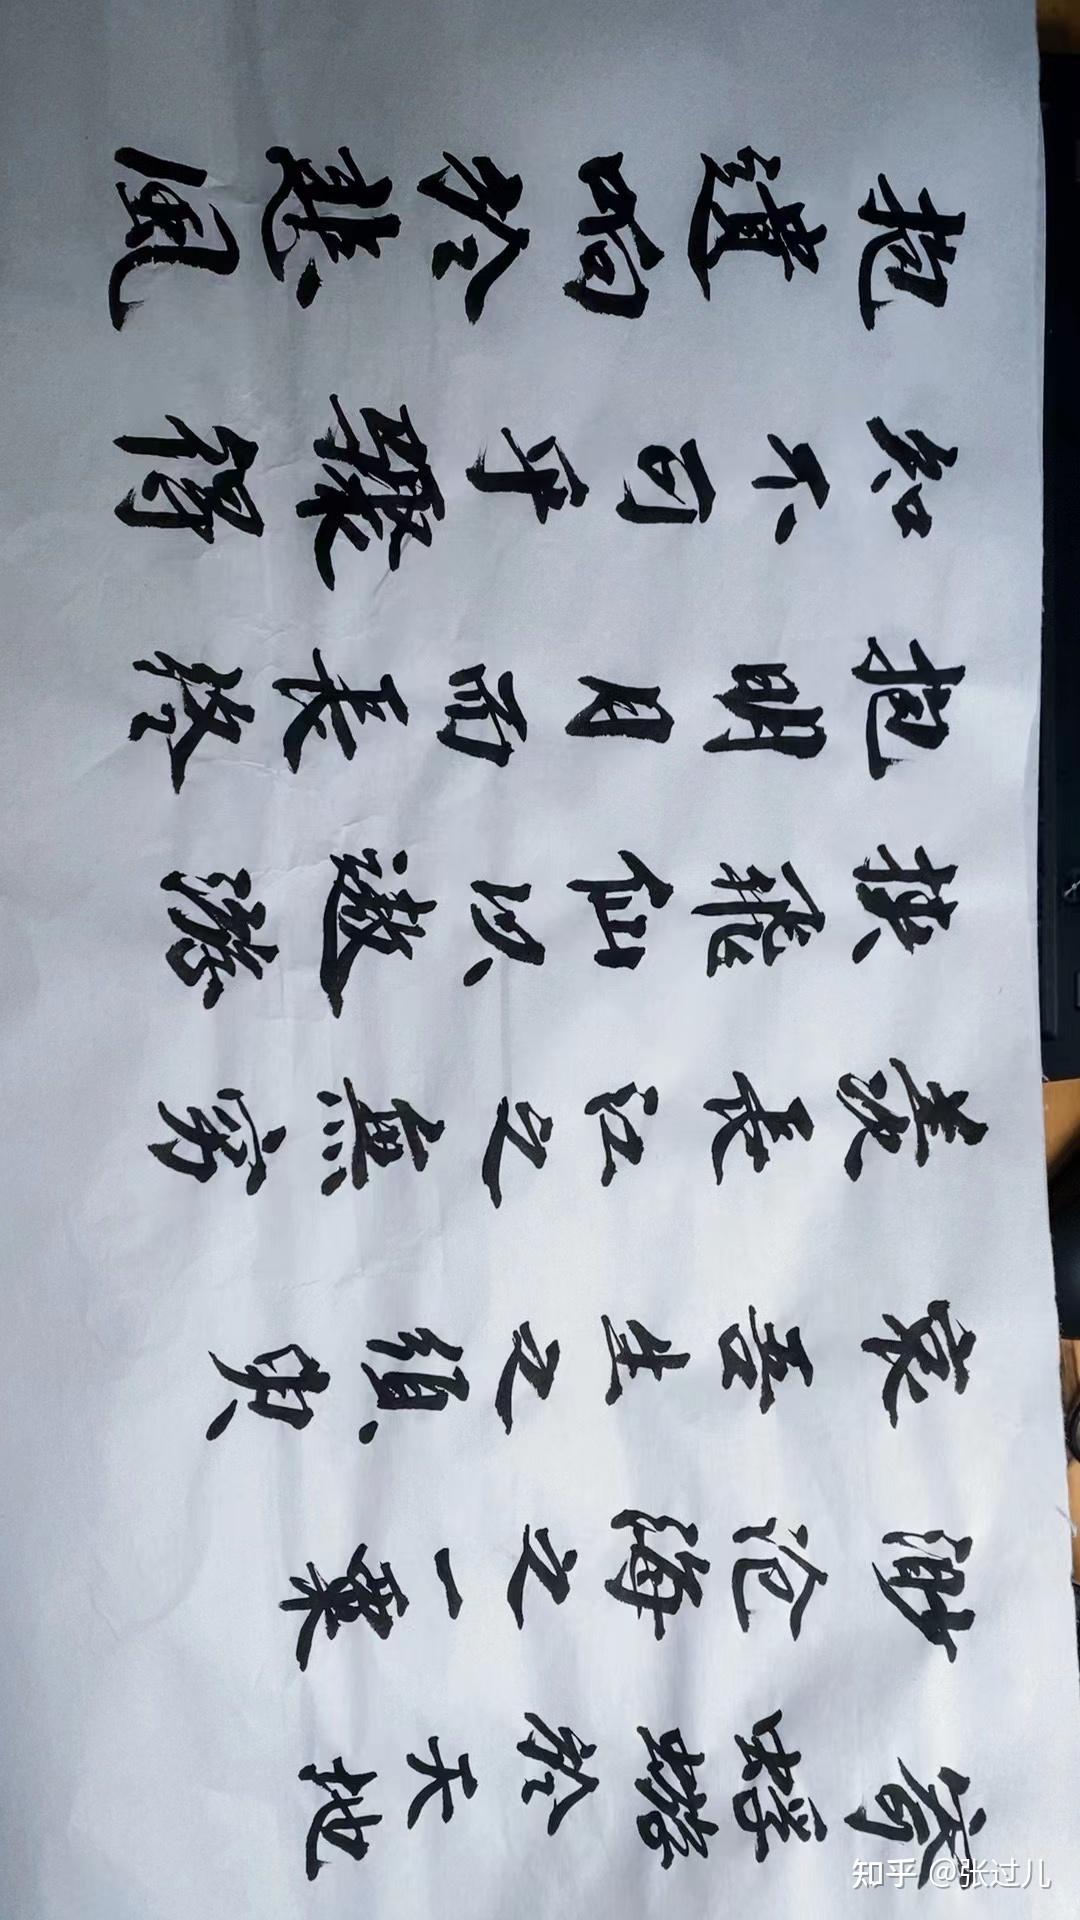 寄蜉蝣於天地
渺沧海之一粟
哀吾生之須臾
羡長江之無穷
挟飛仙以遨游
抱明月而長终
知不可乎驟得
抱遺响於悲風
知乎 @张过儿